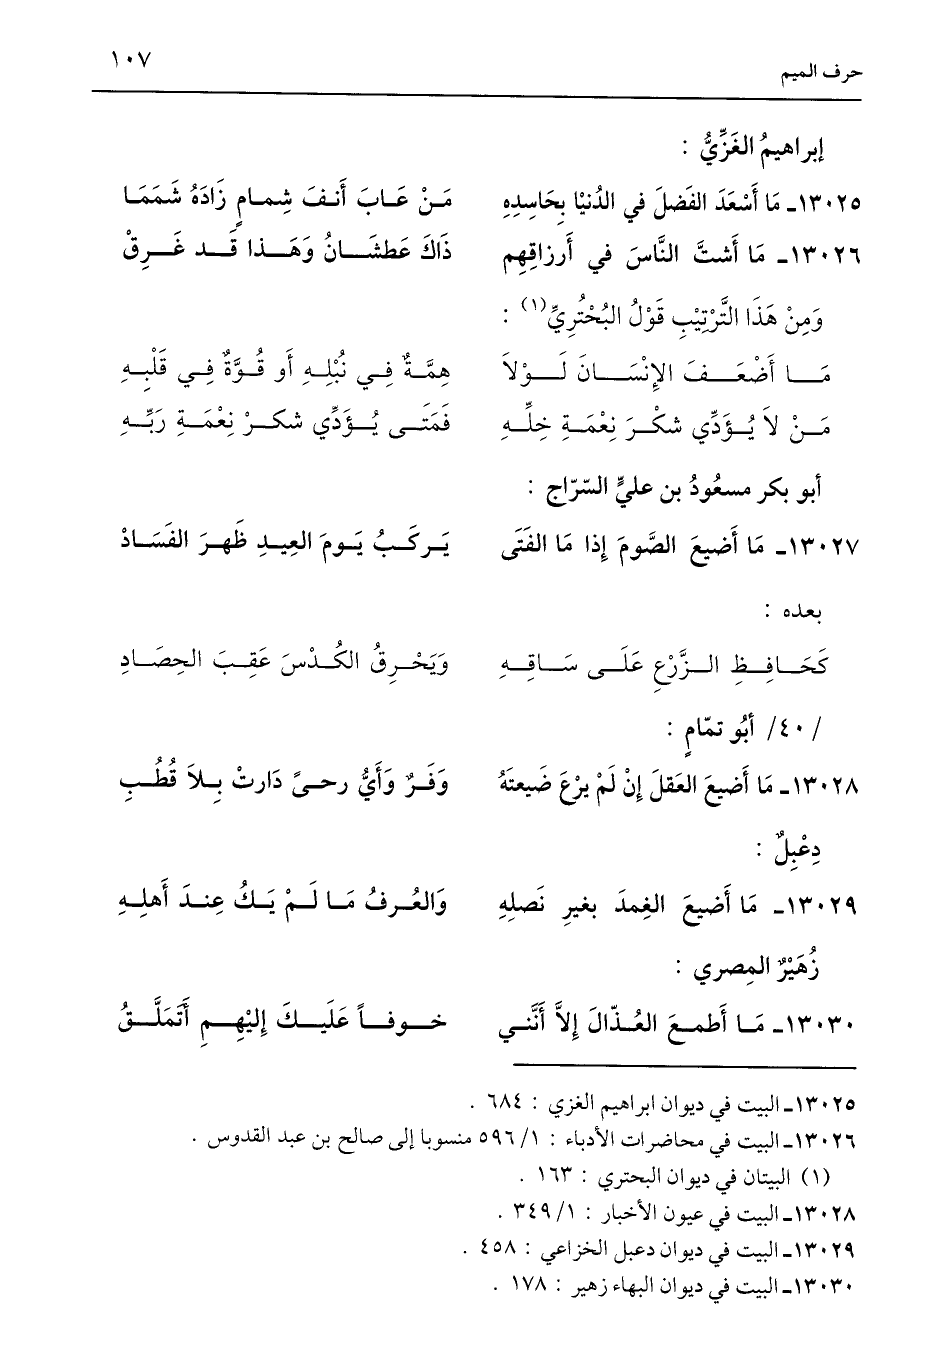 حرف الميم ١٠٧
إبراهيمُ الغَزِّيُّ :
١٣٠٢٥ـ مَا أَسْعَدَ الفَضلَ في الدُنيْا بِحَاسِدِهِ مَـنْ عَـابَ أَنـفَ شِمـامٍ زَادَهُ شَمَمَا
١٣٠٢٦ـ مَا أَشتَّ النَّاسَ في أَرزاقِهِم ذَاكَ عَطشَـانُ وَهَـذا قَـد غَـرِقْ
وَمِنْ هَذَا التَّرْتِيْبِ قَوْلُ البُحْتُرِيِّ(١) :
مَـا أَضْعَـفَ الإِنْسَـانَ لَـوْلاَ هِمَّةٌ فِـي نُبْلِـهِ أَو قُـوَّةٌ فِـي قَلْبِـهِ
مَـنْ لاَ يُـؤَدِّي شكْـرَ نِعْمَـةِ خِلِّـهِ فَمَتَـى يُـؤَدِّي شكـرْ نِعْمَـةِ رَبِّـهِ
أبو بكر مسعُودُ بن عليٍّ السّرّاج :
١٣٠٢٧ـ مَا أَضيعَ الصَّومَ إِذا مَا الفَتَى يَـركَـبُ يَـومَ العِيـدِ ظَهرَ الفَسَـادْ
بعده :
كَحَـافِـظِ الـزَّرْعِ عَلَـى سَـاقِـهِ وَيَحْـرِقُ الكُدْسَ عَقِـبَ الحِصَـادِ
/ ٤٠/ أبُو تمّامٍ :
١٣٠٢٨ـ مَا أَضيعَ العَقلَ إِنْ لَمْ يرْعَ ضَيعتَهُ وَفَـرٌ وَأَيُّ رحـىً دَارتْ بِـلاَ قُطُـبِ
دِعْبِلٌ :
١٣٠٢٩ـ مَا أَضيَعَ الغِمدَ بغيرِ نَصلِهِ وَالعُـرفُ مَـا لَـمْ يَـكُ عِندَ أَهلِـهِ
زُهَيْرٌ المِصري :
١٣٠٣٠ـ مَـا أَطمـعَ العُـذّالَ إِلاَّ أَنَّني خـوفـاً عَلَيـكَ إِليْهِـم أَتَملَّـقُ
١٣٠٢٥ـ البيت في ديوان ابراهيم الغزي : ٦٨٤ .
١٣٠٢٦ـ البيت في محاضرات الأدباء : ١/ ٥٩٦ منسوبا إلى صالح بن عبد القدوس .
(١) البيتان في ديوان البحتري : ١٦٣ .
١٣٠٢٨ـ البيت في عيون الأخبار : ١/ ٣٤٩ .
١٣٠٢٩ـ البيت في ديوان دعبل الخزاعي : ٤٥٨ .
١٣٠٣٠ـ البيت في ديوان البهاء زهير : ١٧٨ .